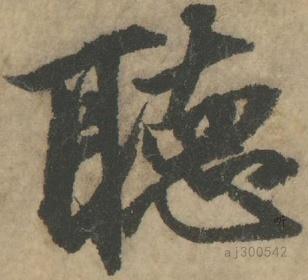 聽
aj300542